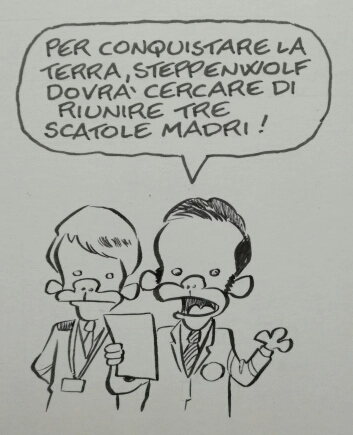 PER CONQUISTARE LA
TERRA, STEPPENWOLF
DOVRÀ CERCARE DI
RIUNIRE TRE
SCATOLE MADRI!